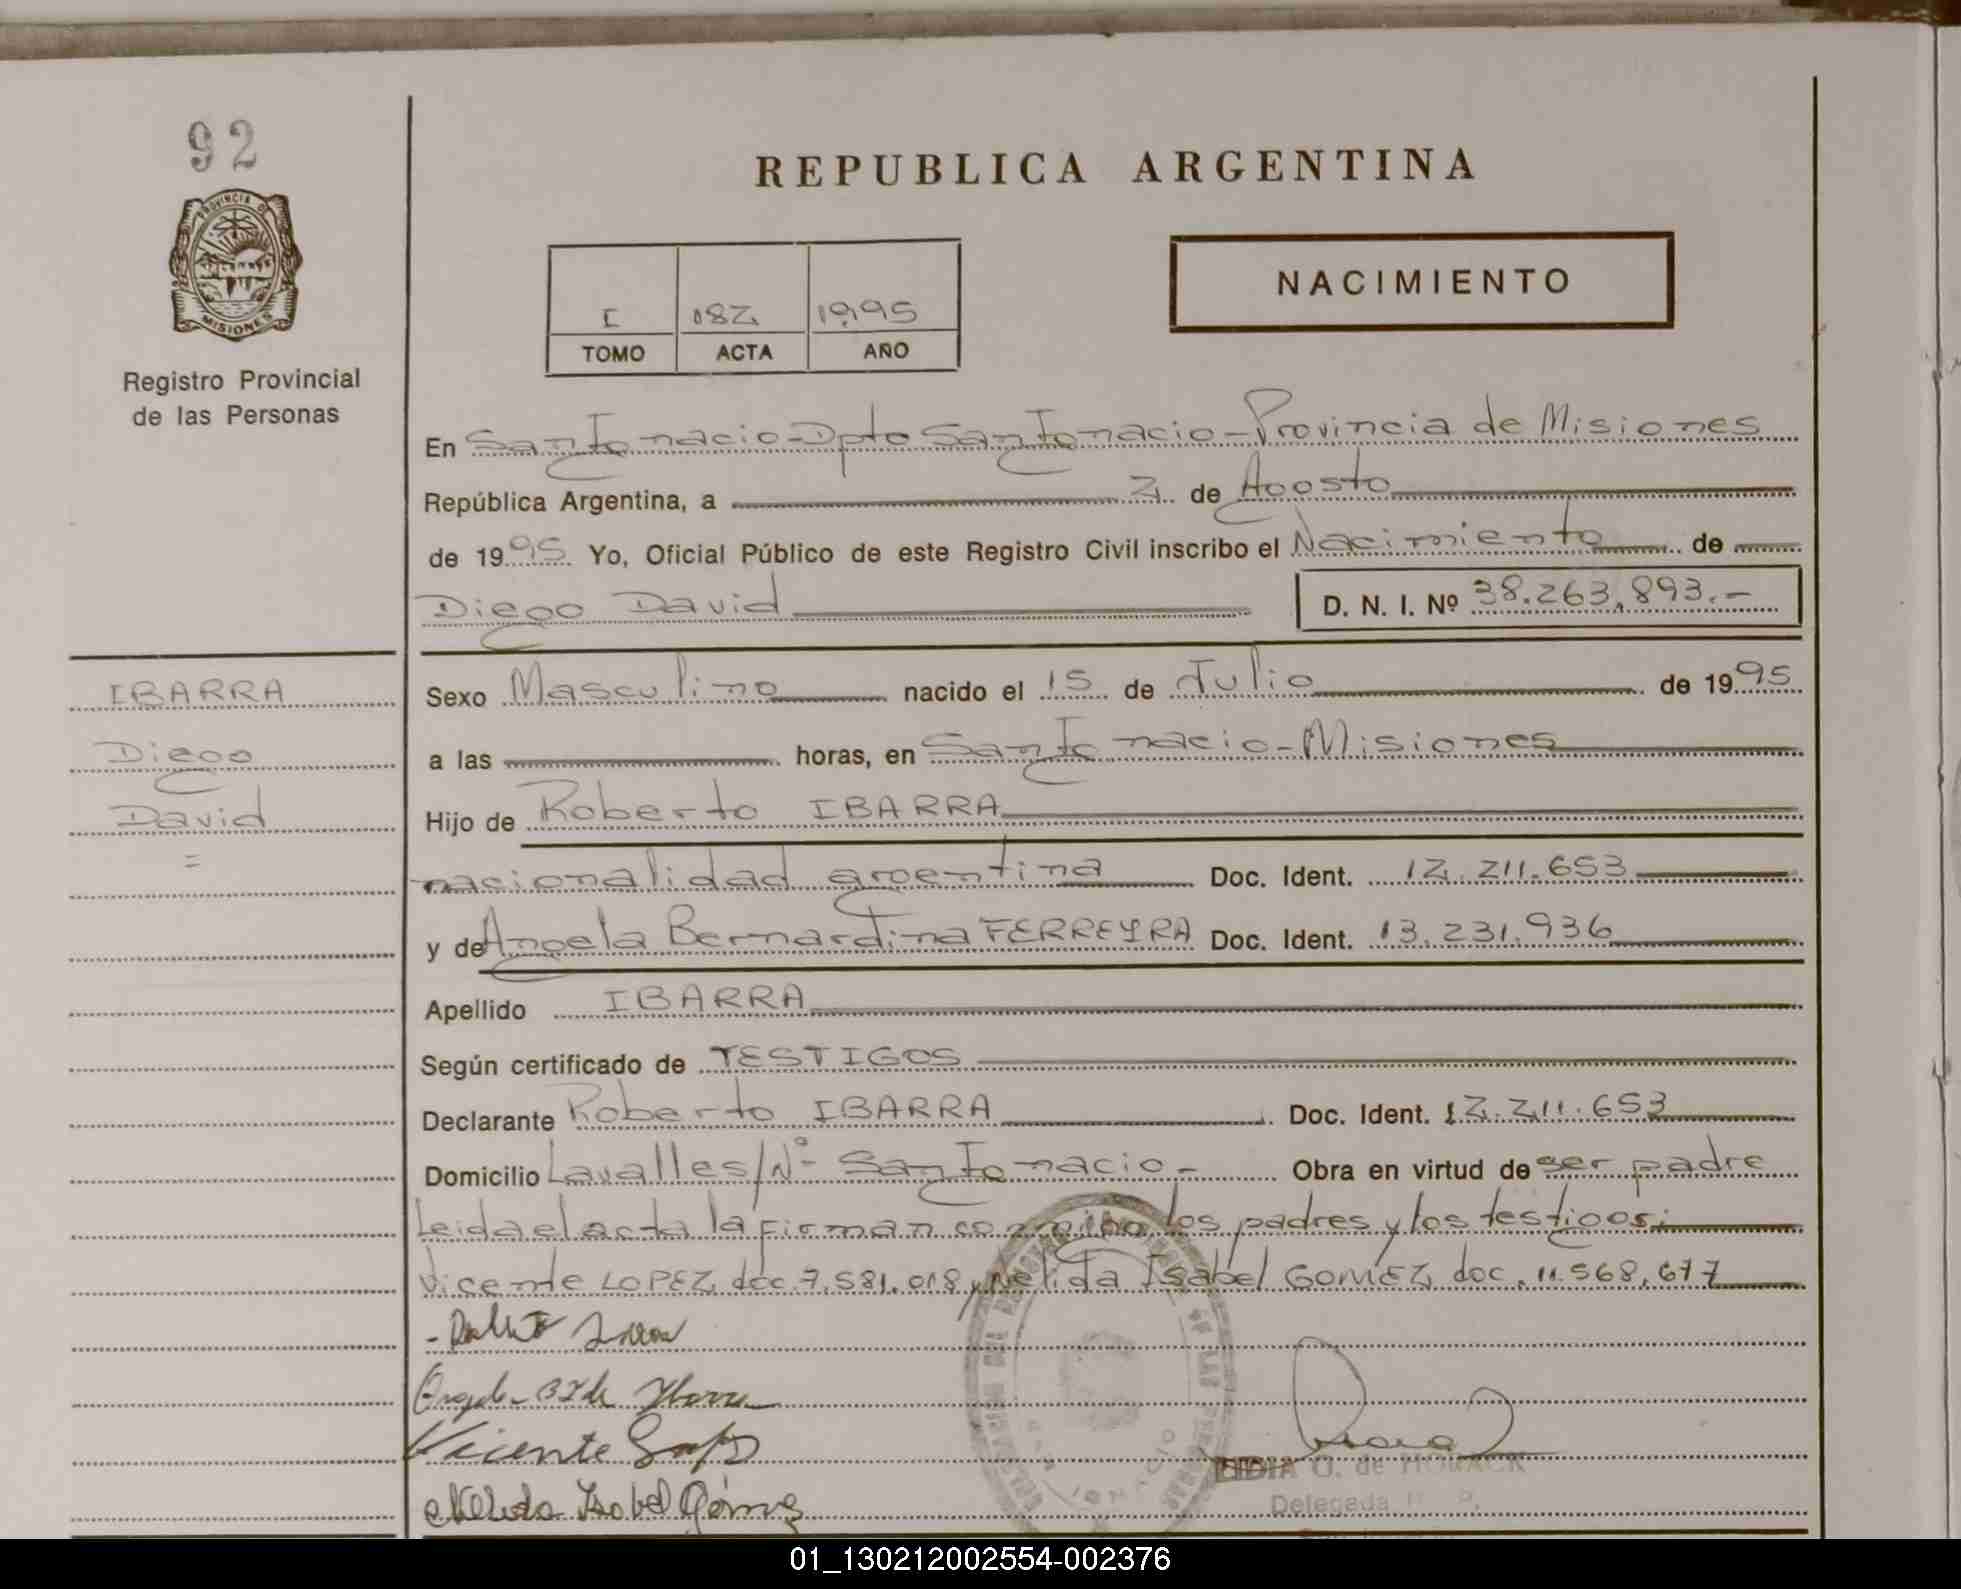 92
PROVINCIA DE
MISIONES
Registro Provincial
de las Personas
REPUBLICA ARGENTINA
I 082 1995
TOMO ACTA AÑO
NACIMIENTO
En San Ignacio-Dpto San Ignacio-Provincia de Misiones
República Argentina, a 2 de Agosto
de 1995 Yo, Oficial Público de este Registro Civil inscribo el Nacimiento de
Diego David D. N. I. Nº 38.263.893.-
IBARRA
Diego
David
=
Sexo Masculino nacido el 15 de Julio de 1995
a las horas, en San Ignacio-Misiones
Hijo de Roberto IBARRA
nacionalidad argentina Doc. Ident. 12.211.653
y de Angela Bernardina FERREYRA Doc. Ident. 13.231.936
Apellido IBARRA
Según certificado de TESTIGOS
Declarante Roberto IBARRA Doc. Ident. 12.211.653
Domicilio Lavalle s/Nº San Ignacio- Obra en virtud de ser padre
Leida el acta la firman conmigo, los padres y los testigos:
Vicente LOPEZ doc. 7.581.018 y Nelida Isabel GOMEZ doc. 11.568.677
Vicente
Nelida Isabel Gómez
LIDIA O. de HORACK
Delegada R. P.
01_130212002554-002376